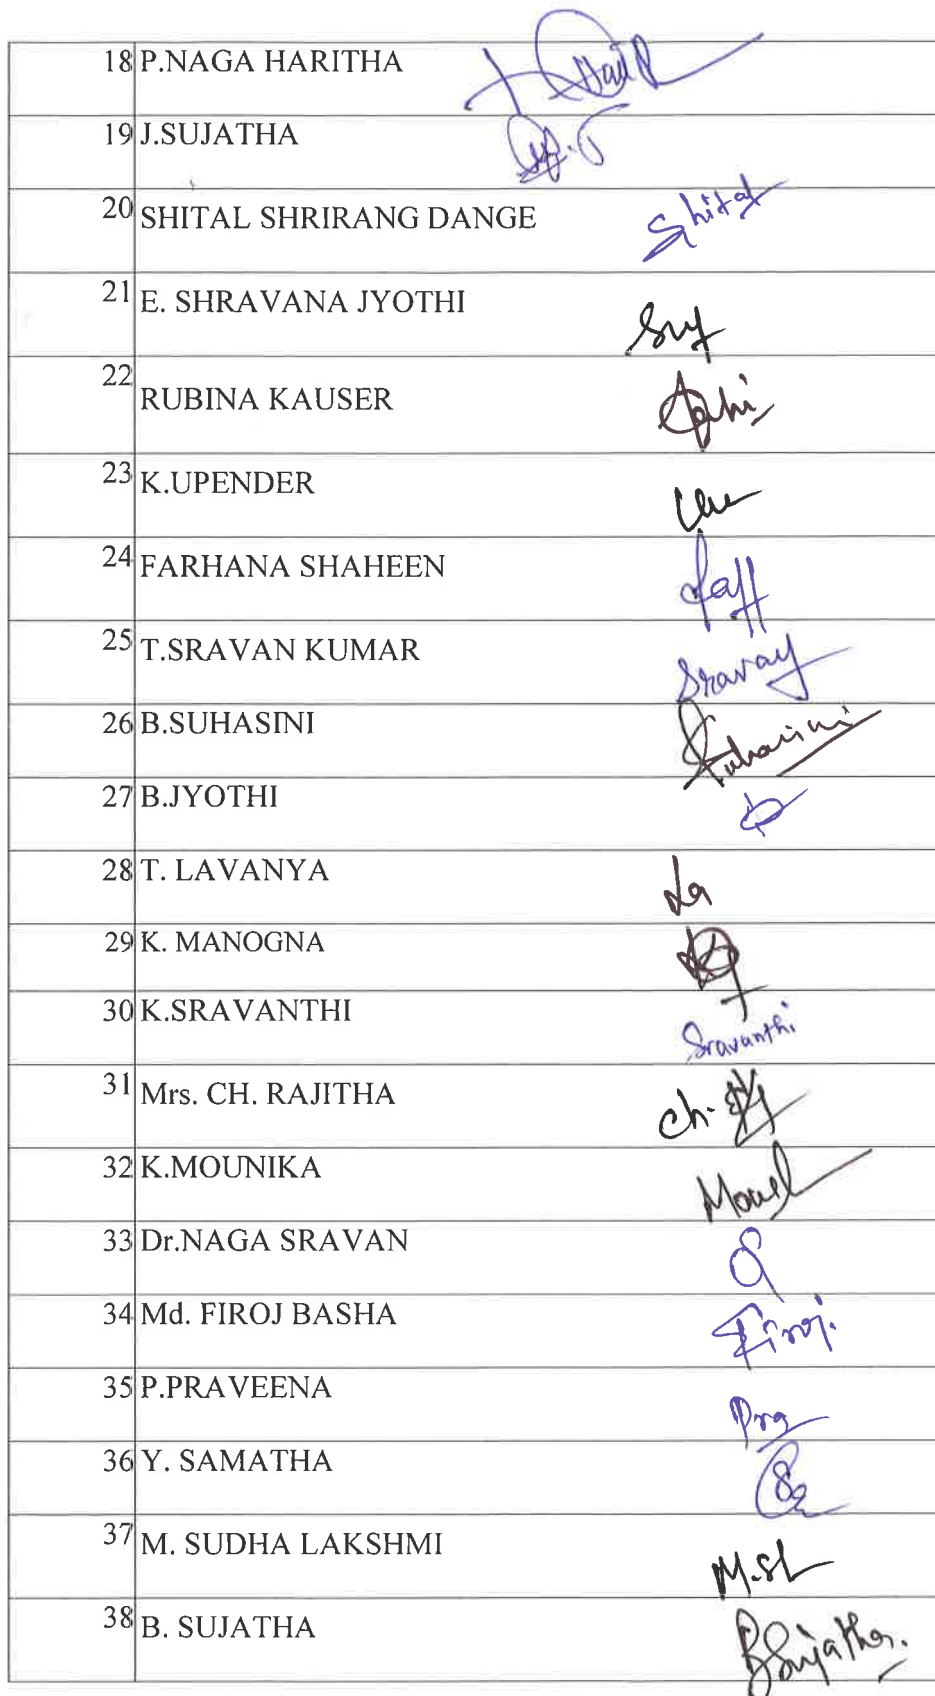 18 P.NAGA HARITHA
19 J.SUJATHA
20 SHITAL SHRIRANG DANGE Shital
21 E. SHRAVANA JYOTHI
22 RUBINA KAUSER
23 K.UPENDER
24 FARHANA SHAHEEN
25 T.SRAVAN KUMAR Sravan
26 B.SUHASINI Suhasini
27 B.JYOTHI
28 T. LAVANYA La
29 K. MANOGNA
30 K.SRAVANTHI Sravanthi
31 Mrs. CH. RAJITHA Ch.
32 K.MOUNIKA
33 Dr.NAGA SRAVAN
34 Md. FIROJ BASHA Firoj.
35 P.PRAVEENA Pra
36 Y. SAMATHA
37 M. SUDHA LAKSHMI M.SL
38 B. SUJATHA BSujatha.